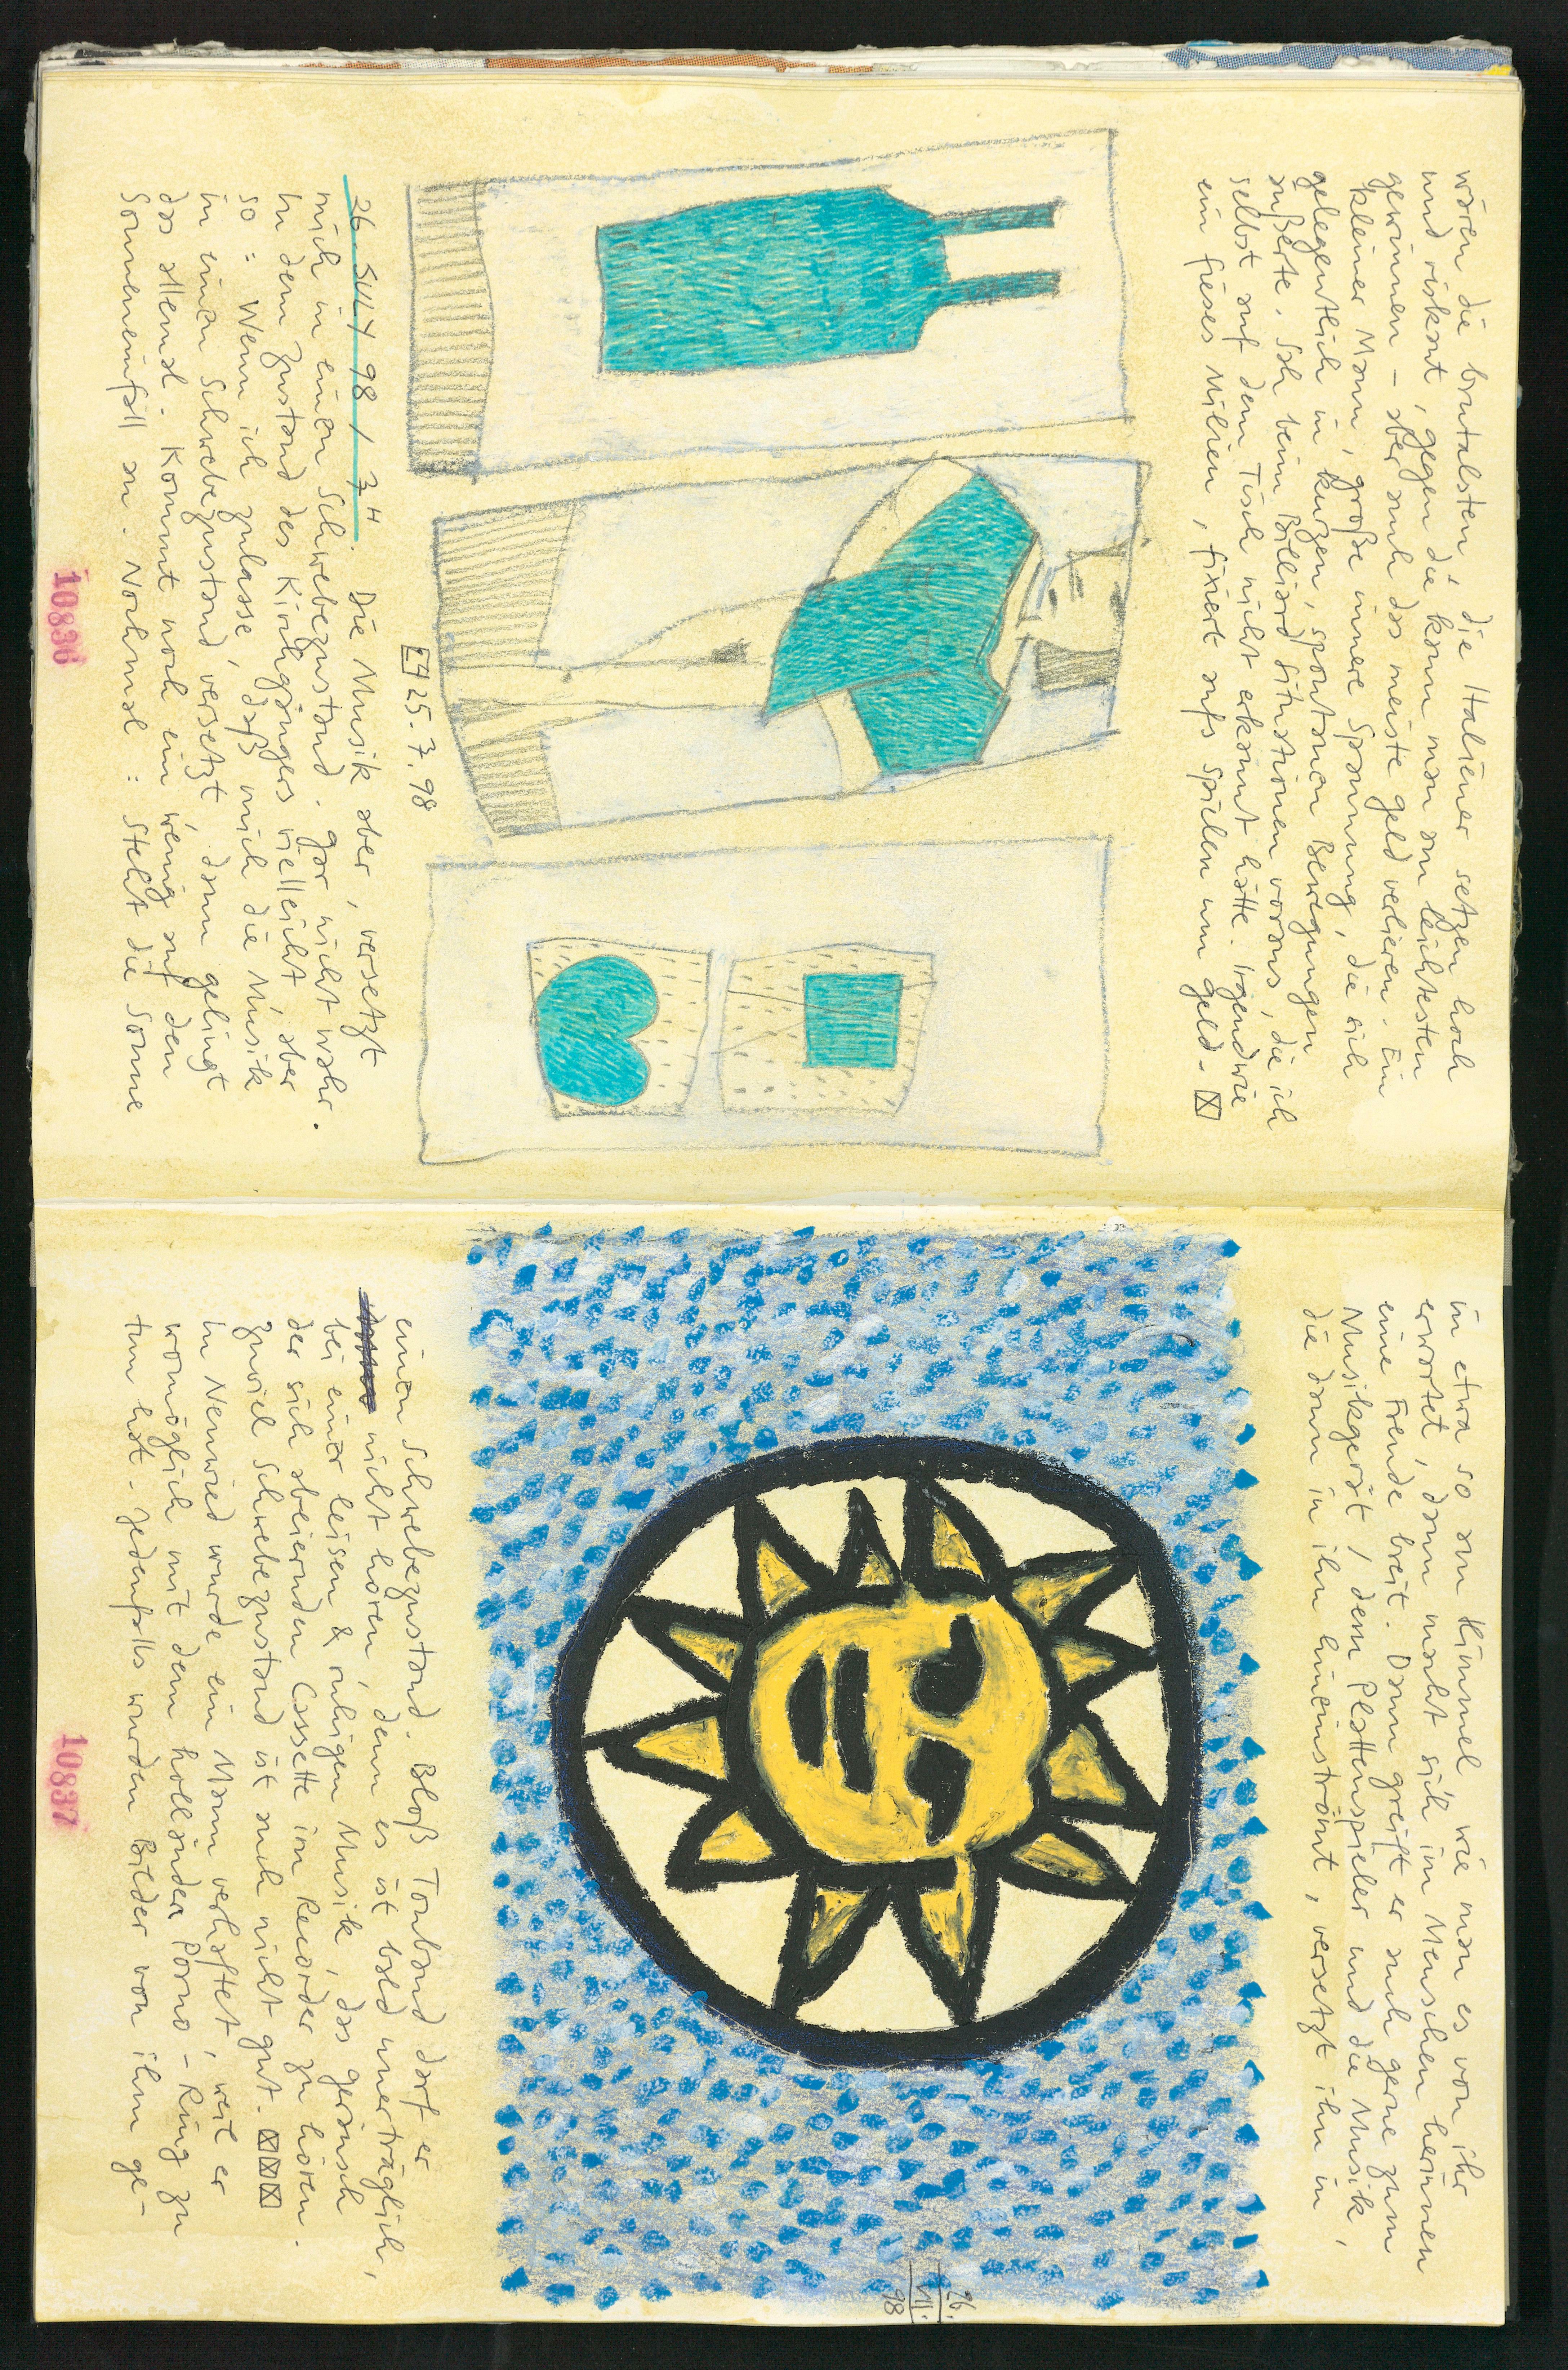 wären die brutalsten, die Italiener setzen hoch
und riskant, gegen die kann man am leichtesten
gewinnen – aber auch das meiste Geld verlieren. Ein
kleiner Mann, große innere Spannung, die sich
gelegentlich in kurzen, spontanen Bewegungen
äußerte. Sah beim Billiard Situationen voraus, die ich
selbst auf dem Tisch nicht erkannt hätte. Irgendwie
ein fieses Milieu, fixiert aufs Spielen um Geld. ☒
25.7.98
26 JULY 98 / 7H. Die Musik aber, versetzt
mich in einen Schwebezustand. Gar nicht wahr.
In dem Zustand des Kirchgängers vielleicht, aber
so: Wenn ich zulasse, daß mich die Musik
in einen Schwebezustand versetzt, dann gelingt
das allemal. Kommt noch ein wenig auf den
Sonneneinfall an. Nochmal: Steht die Sonne
10836
in etwa so am Himmel wie man es von ihr
erwartet, dann macht sich im Menschen herinnen
eine Freude breit. Dann greift er auch gerne zum
Musikgerät, dem Plattenspieler und die Musik,
die dann in ihn hineinströmt, versetzt ihn in
26.
VII.
98
einen Schwebezustand. Bloß Tonband darf er
nicht hören, denn es ist bald unerträglich,
bei einer leisen & ruhigen Musik, das Geräusch
der sich abeiernden Cassette im Recorder zu hören.
Zuviel Schwebezustand ist auch nicht gut. ☒☒☒
In Neuwied wurde ein Mann verhaftet, weil er
womöglich mit dem holländer Porno-Ring zu
tun hat. Jedenfalls wurden Bilder von ihm ge-
10837